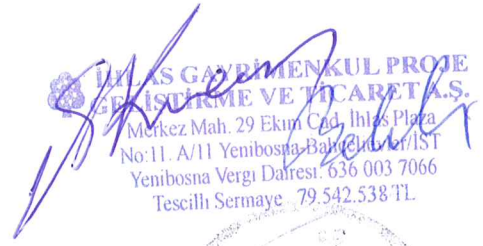 İHLAS GAYRİMENKUL PROJE
GELİŞTİRME VE TİCARET A.Ş.
Merkez Mah. 29 Ekim Cad. İhlas Plaza
No:11. A/11 Yenibosna-Bahçelievler/İST
Yenibosna Vergi Dairesi: 636 003 7066
Tescilli Sermaye 79.542.538 TL